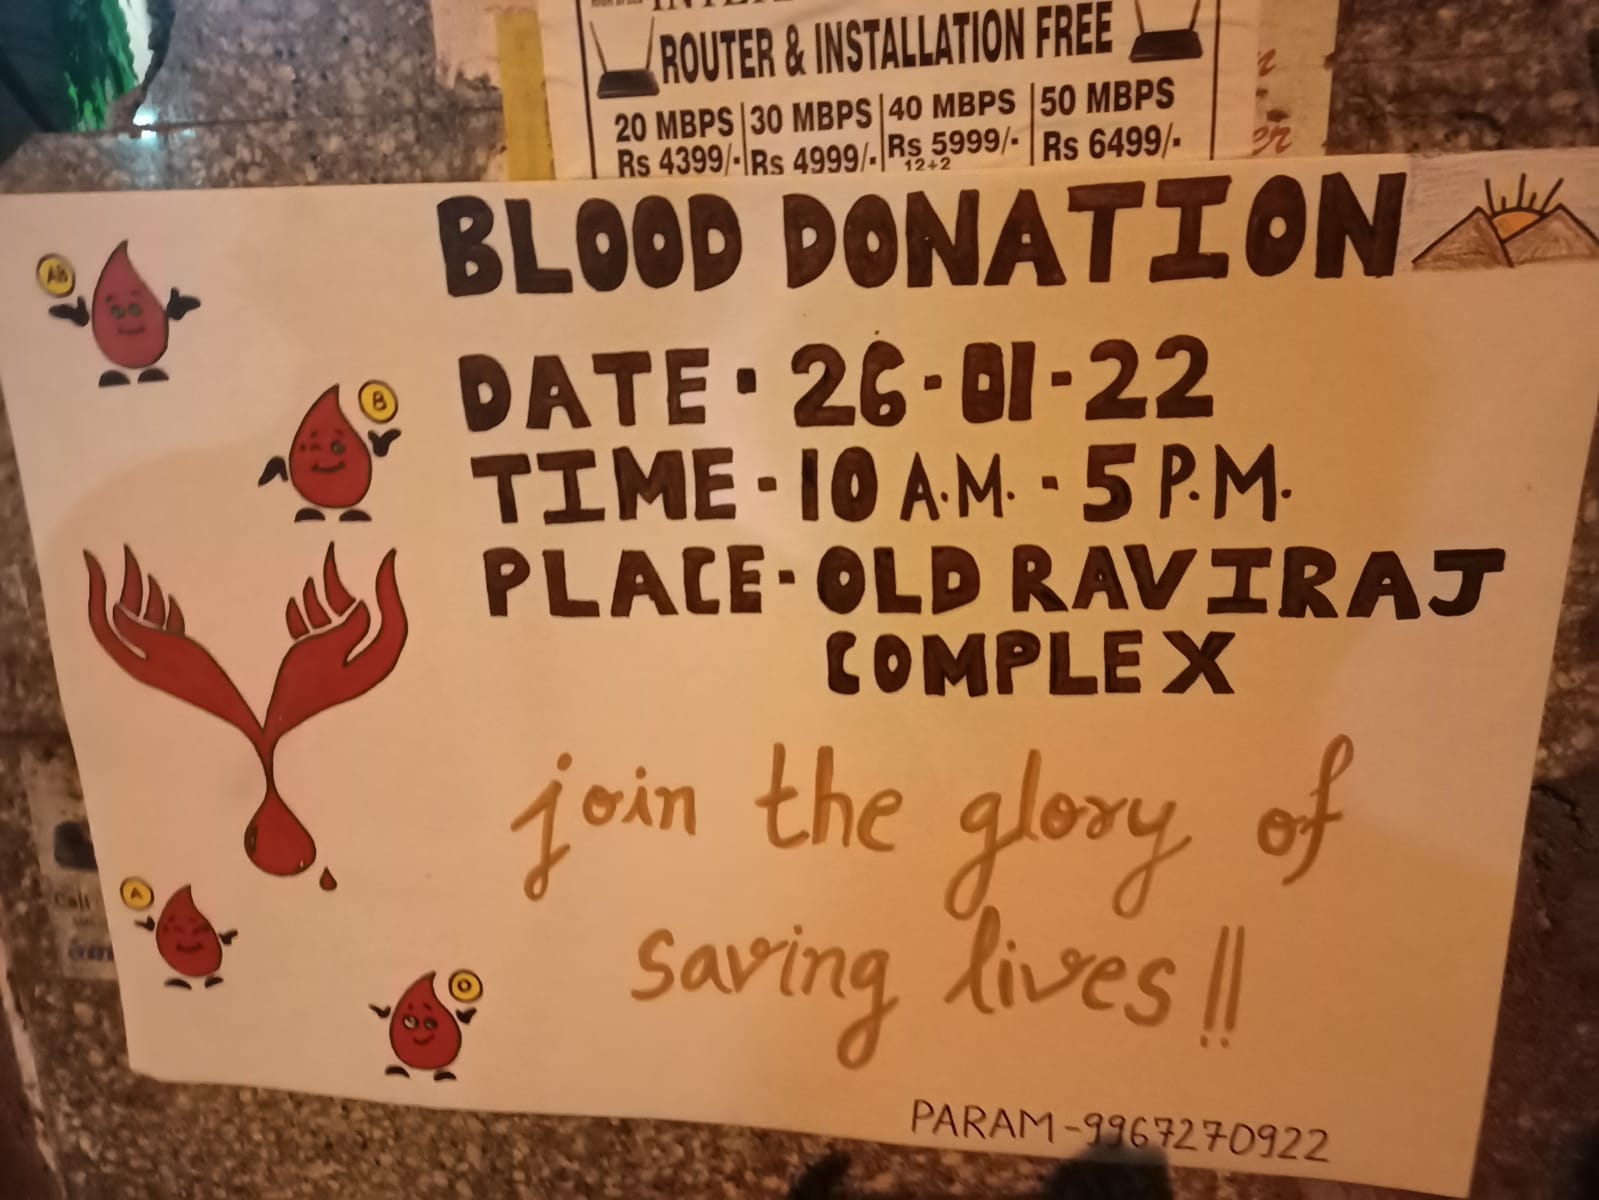 ROUTER & INSTALLATION FREE
20 MBPS 30 MBPS 40 MBPS 50 MBPS
Rs 4399/- Rs 4999/- Rs 5999/- Rs 6499/-
12+2
BLOOD DONATION
AB
DATE - 26-01-22
B
TIME - 10 A.M. - 5 P.M.
PLACE - OLD RAVIRAJ
COMPLEX
join the glory of
A
saving lives!!
O
PARAM - 9967270922
Call